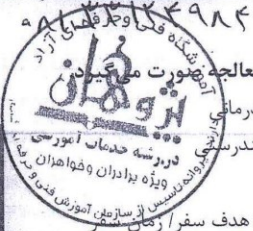 آموزشگاه فنی و حرفه‌ای آزاد
معالجه صورت می‌گیرد.
پژوهان
درمانی
در رشته خدمات آموزشی
ویژه برادران و خواهران
دارنده پروانه تاسیس از سازمان آموزش فنی و حرفه‌ای
هدف سفر/ زمان سفر